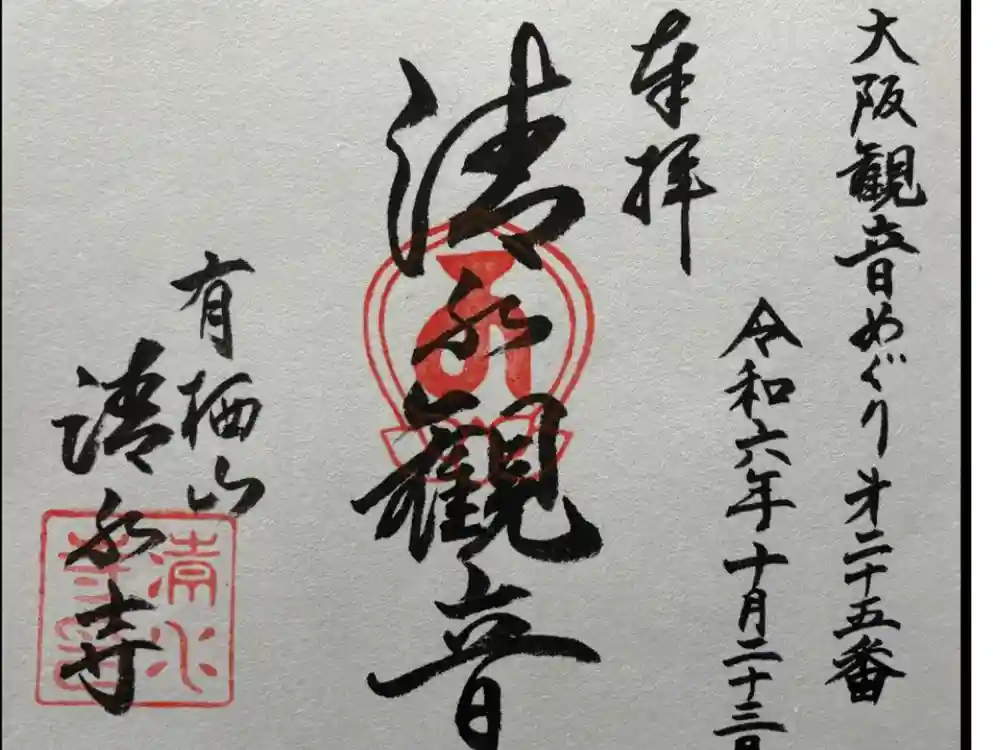 大阪観音めぐり㐧二十五番
奉拝
令和六年十月二十三日
清水観音
有栖山
清水寺